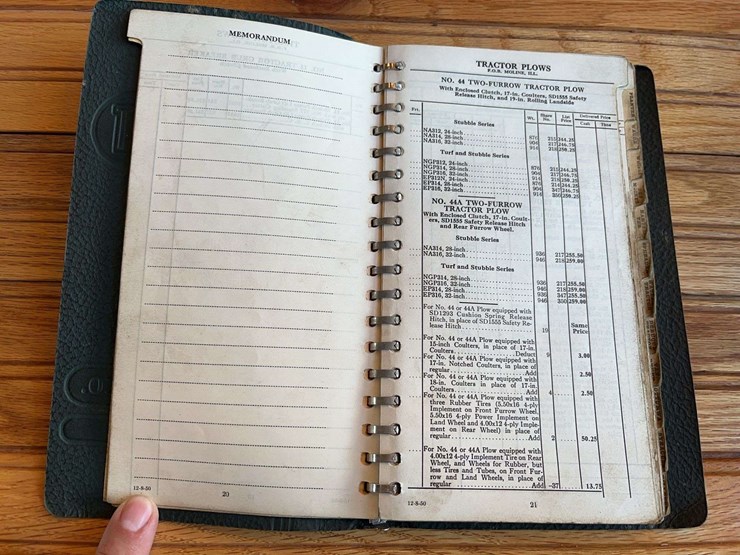 MEMORANDUM
12-8-50
20
TRACTOR PLOWS
F.O.B. MOLINE, ILL.
NO. 44 TWO-FURROW TRACTOR PLOW
With Enclosed Clutch, 17-in. Coulters, SD1555 Safety
Release Hitch, and 19-in. Rolling Landside
Frt. Wt. Share No. List Price Delivered Price
Cash Time
Stubble Series
NA312, 24-inch
NA314, 28-inch
NA316, 32-inch
Turf and Stubble Series
NGP312, 24-inch
NGP314, 28-inch
NGP316, 32-inch
EP312N, 24-inch
EP314, 28-inch
EP316, 32-inch
NO. 44A TWO-FURROW
TRACTOR PLOW
With Enclosed Clutch, 17-in. Coult-
ers, SD1555 Safety Release Hitch
and Rear Furrow Wheel.
Stubble Series
NA314, 28-inch 936 217 255.50
NA316, 32-inch 946 218 259.00
Turf and Stubble Series
NGP314, 28-inch 936 217 255.50
NGP316, 32-inch 946 218 259.00
EP314, 28-inch 936 347 255.50
EP316, 32-inch 946 350 259.00
For No. 44 or 44A Plow equipped with
SD1293 Cushion Spring Release
Hitch, in place of SD1555 Safety Re-
lease Hitch 10 Same Price
For No. 44 or 44A Plow equipped with
15-inch Coulters, in place of 17-in.
Coulters Deduct 3.00
For No. 44 or 44A Plow equipped with
17-in. Notched Coulters, in place of
regular Add 2.50
For No. 44 or 44A Plow equipped with
18-in. Coulters in place of 17-in.
Coulters Add 4 2.50
For No. 44 or 44A Plow equipped with
three Rubber Tires (5.50x16 4-ply
Implement on Front Furrow Wheel,
5.50x16 4-ply Power Implement on
Land Wheel and 4.00x12 4-ply Imple-
ment on Rear Wheel) in place of
regular Add 2 50.25
For No. 44 or 44A Plow equipped with
4.00x12 4-ply Implement Tire on Rear
Wheel, and Wheels for Rubber, but
less Tires and Tubes, on Front Fur-
row and Land Wheels, in place of
regular Add -37 13.75
12-8-50
21